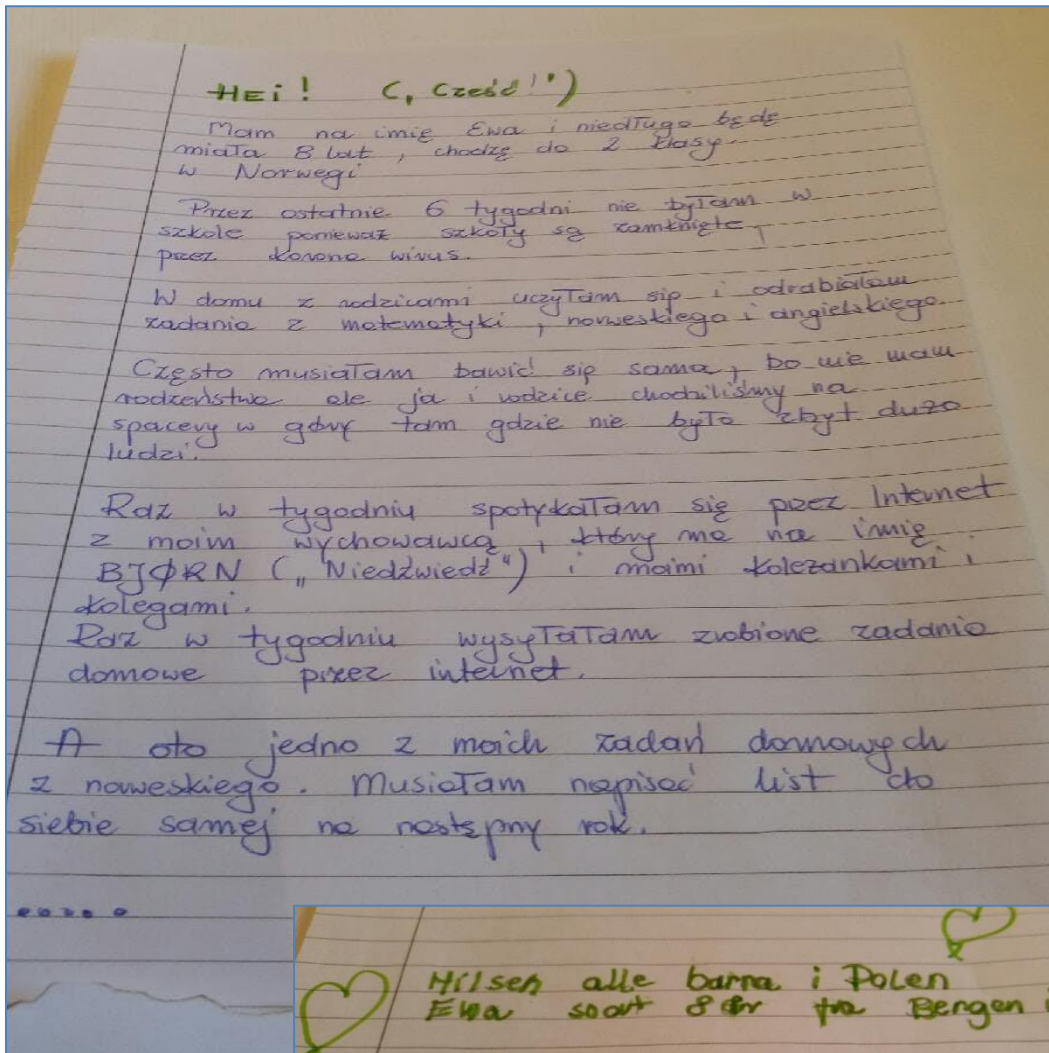 HEi! (, Cześć!')
Mam na imię Ewa i niedługo będę
miała 8 lat, chodzę do 2 klasy
w Norwegi
Przez ostatnie 6 tygodni nie byłam w
szkole ponieważ szkoły są zamknięte,
przez korona wirus.
W domu z rodzicami uczyłam się i odrabiałam
zadania z matematyki, norweskiego i angielskiego.
Często musiałam bawić się sama, bo nie mam
rodzeństwa ale ja i rodzice chodziliśmy na
spacery w góry tam gdzie nie było zbyt dużo
ludzi.
Raz w tygodniu spotykałam się przez Internet
z moim wychowawcą, który ma na imię
BJØRN („Niedźwiedź") i moimi koleżankami i
kolegami.
Raz w tygodniu wysyłałam zrobione zadania
domowe przez internet.
A oto jedno z moich zadań domowych
z noweskiego. Musiałam napisać list do
siebie samej na następny rok.
.....
Hilsen alle barna i Polen
Ewa snart 8 år fra Bergen i